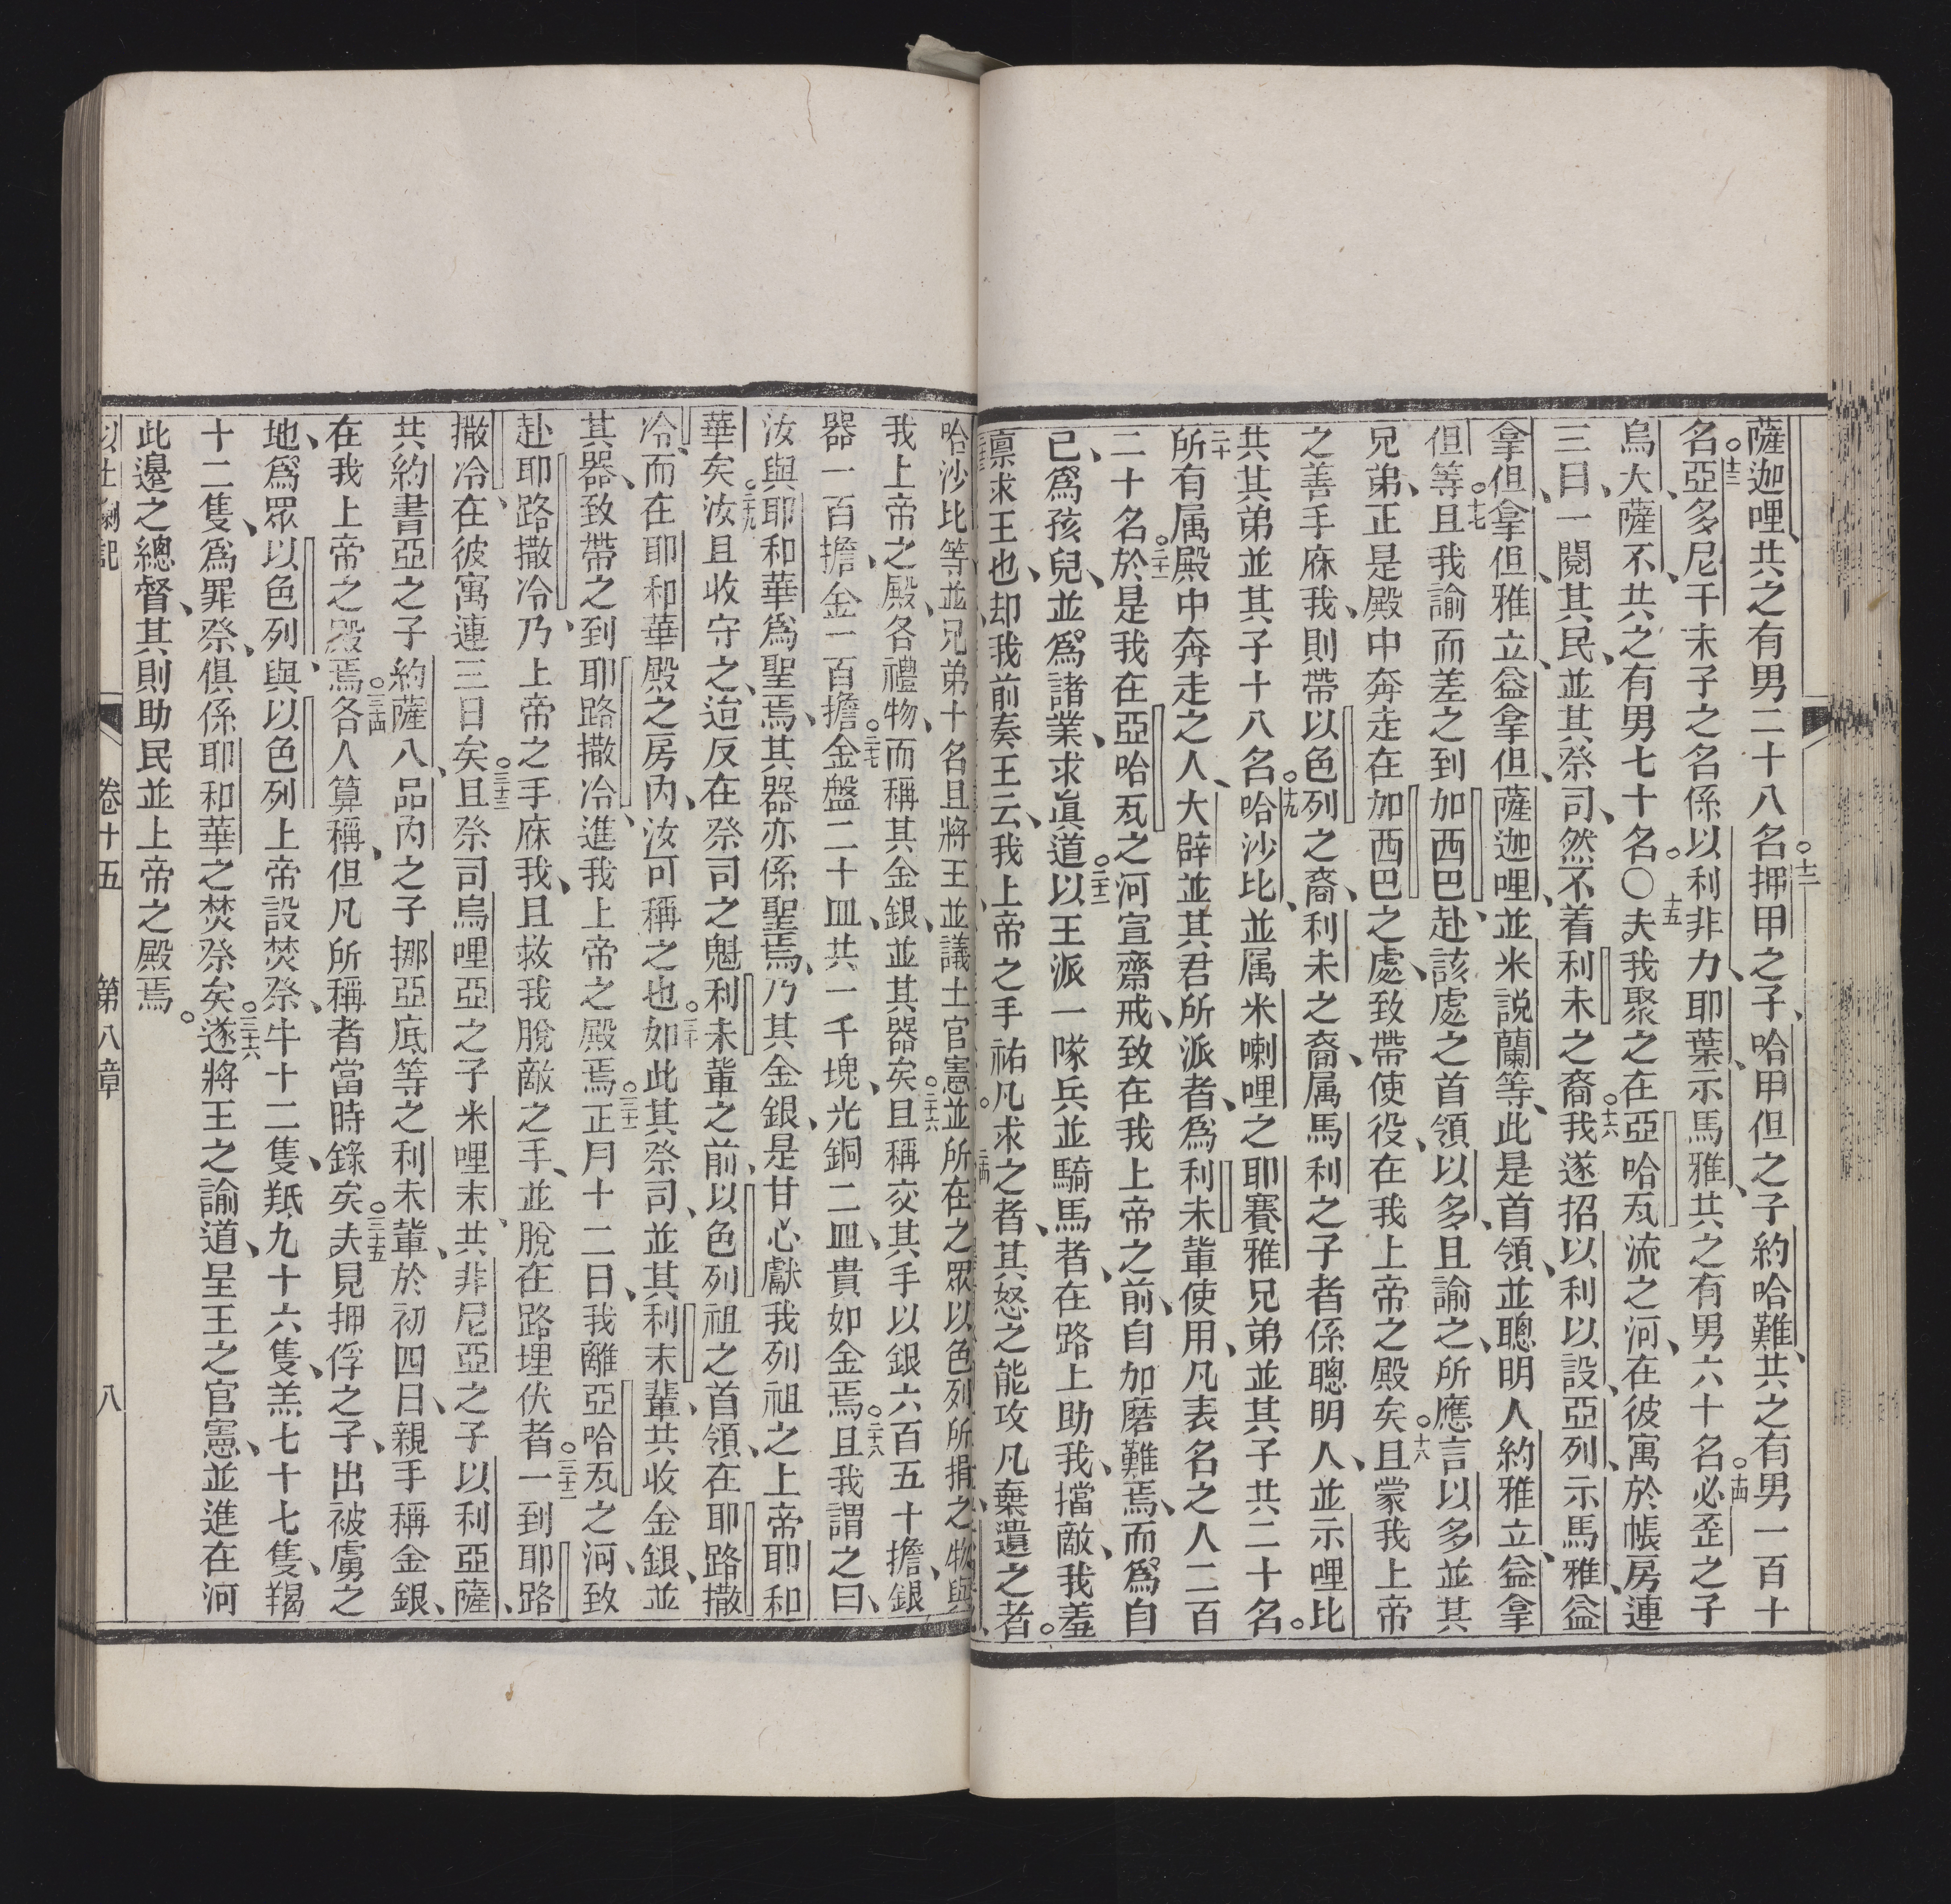 薩迦哩、共之有男二十八名。十二押甲之子、哈甲但之子約哈難、共之有男一百十
名。十三亞多尼干末子之名係以利非力、耶葉、示馬雅、共之有男六十名。十四必歪之子
烏大、薩不、共之有男七十名。〇十五夫我聚之在亞哈瓦流之河、在彼寓於帳房連
三日、一閱其民、並其祭司、然不着利未之裔。十六我遂招以利以設、亞列、示馬雅、益
拿但、拿但、雅立、益拿但、薩迦哩、並米說蘭等、此是首領、並聰明人約雅立、益拿
但等。十七且我諭而差之到加西巴、赴該處之首領以多、且諭之、所應言以多並其
兄弟、正是殿中奔走在加西巴之處、致帶使役、在我上帝之殿矣。十八且蒙我上帝
之善手庥我、則帶以色列之裔、利未之裔、属馬利之子者係聰明人、並示哩比
共其弟並其子十八名。十九哈沙比、並属米喇哩之耶賽雅兄弟並其子共二十名。
二十所有属殿中奔走之人、大辟並其君所派者、為利未輩使用、凡表名之人二百
二十名。二十一於是我在亞哈瓦之河宣齋戒、致在我上帝之前、自加磨難焉、而為自
已、為孩兒、並為諸業、求眞道。二十二以王派一隊兵並騎馬者、在路上助我、擋敵、我羞
禀求王也、却我前奏王云、我上帝之手祐凡求之者、其怒之能攻凡棄遺之者。
哈沙比等、並兄弟十名、且將王並議士官憲、並所在之眾以色列所捐之物與
我上帝之殿、各禮物、而稱其金銀、並其器矣。二十六且稱交其手以銀六百五十擔、銀
器一百擔、金一百擔。二十七金盤二十皿、共一千塊、光銅二皿、貴如金焉。二十八且我謂之曰、
汝與耶和華為聖焉、其器亦係聖焉、乃其金銀、是甘心獻我列祖之上帝耶和
華矣。二十九汝且收守之、迨反在祭司之魁利未輩之前、以色列祖之首領、在耶路撒
冷、而在耶和華殿之房內、汝可稱之也。三十如此其祭司、並其利未輩、共收金銀、並
其器、致帶之到耶路撒冷、進我上帝之殿焉。三十一正月十二日、我離亞哈瓦之河、致
赴耶路撒冷、乃上帝之手庥我、且救我脫敵之手、並脫在路埋伏者。三十二一到耶路
撒冷、在彼寓連三日矣。三十三且祭司烏哩亞之子米哩末、共非尼亞之子以利亞薩、
共約書亞之子約薩八、品內之子挪亞底等之利未輩、於初四日、親手稱金銀、
在我上帝之殿焉。三十四各人算稱、但凡所稱者當時錄矣。三十五夫見押俘之子、出被虜之
地、為眾以色列、與以色列上帝設焚祭、牛十二隻、羝九十六隻、羔七十七隻、羯
十二隻、為罪祭、俱係耶和華之焚祭矣。三十六遂將王之諭道、呈王之官憲、並進在河
此邊之總督、其則助民並上帝之殿焉。
以士喇記 卷十五 第八章 八